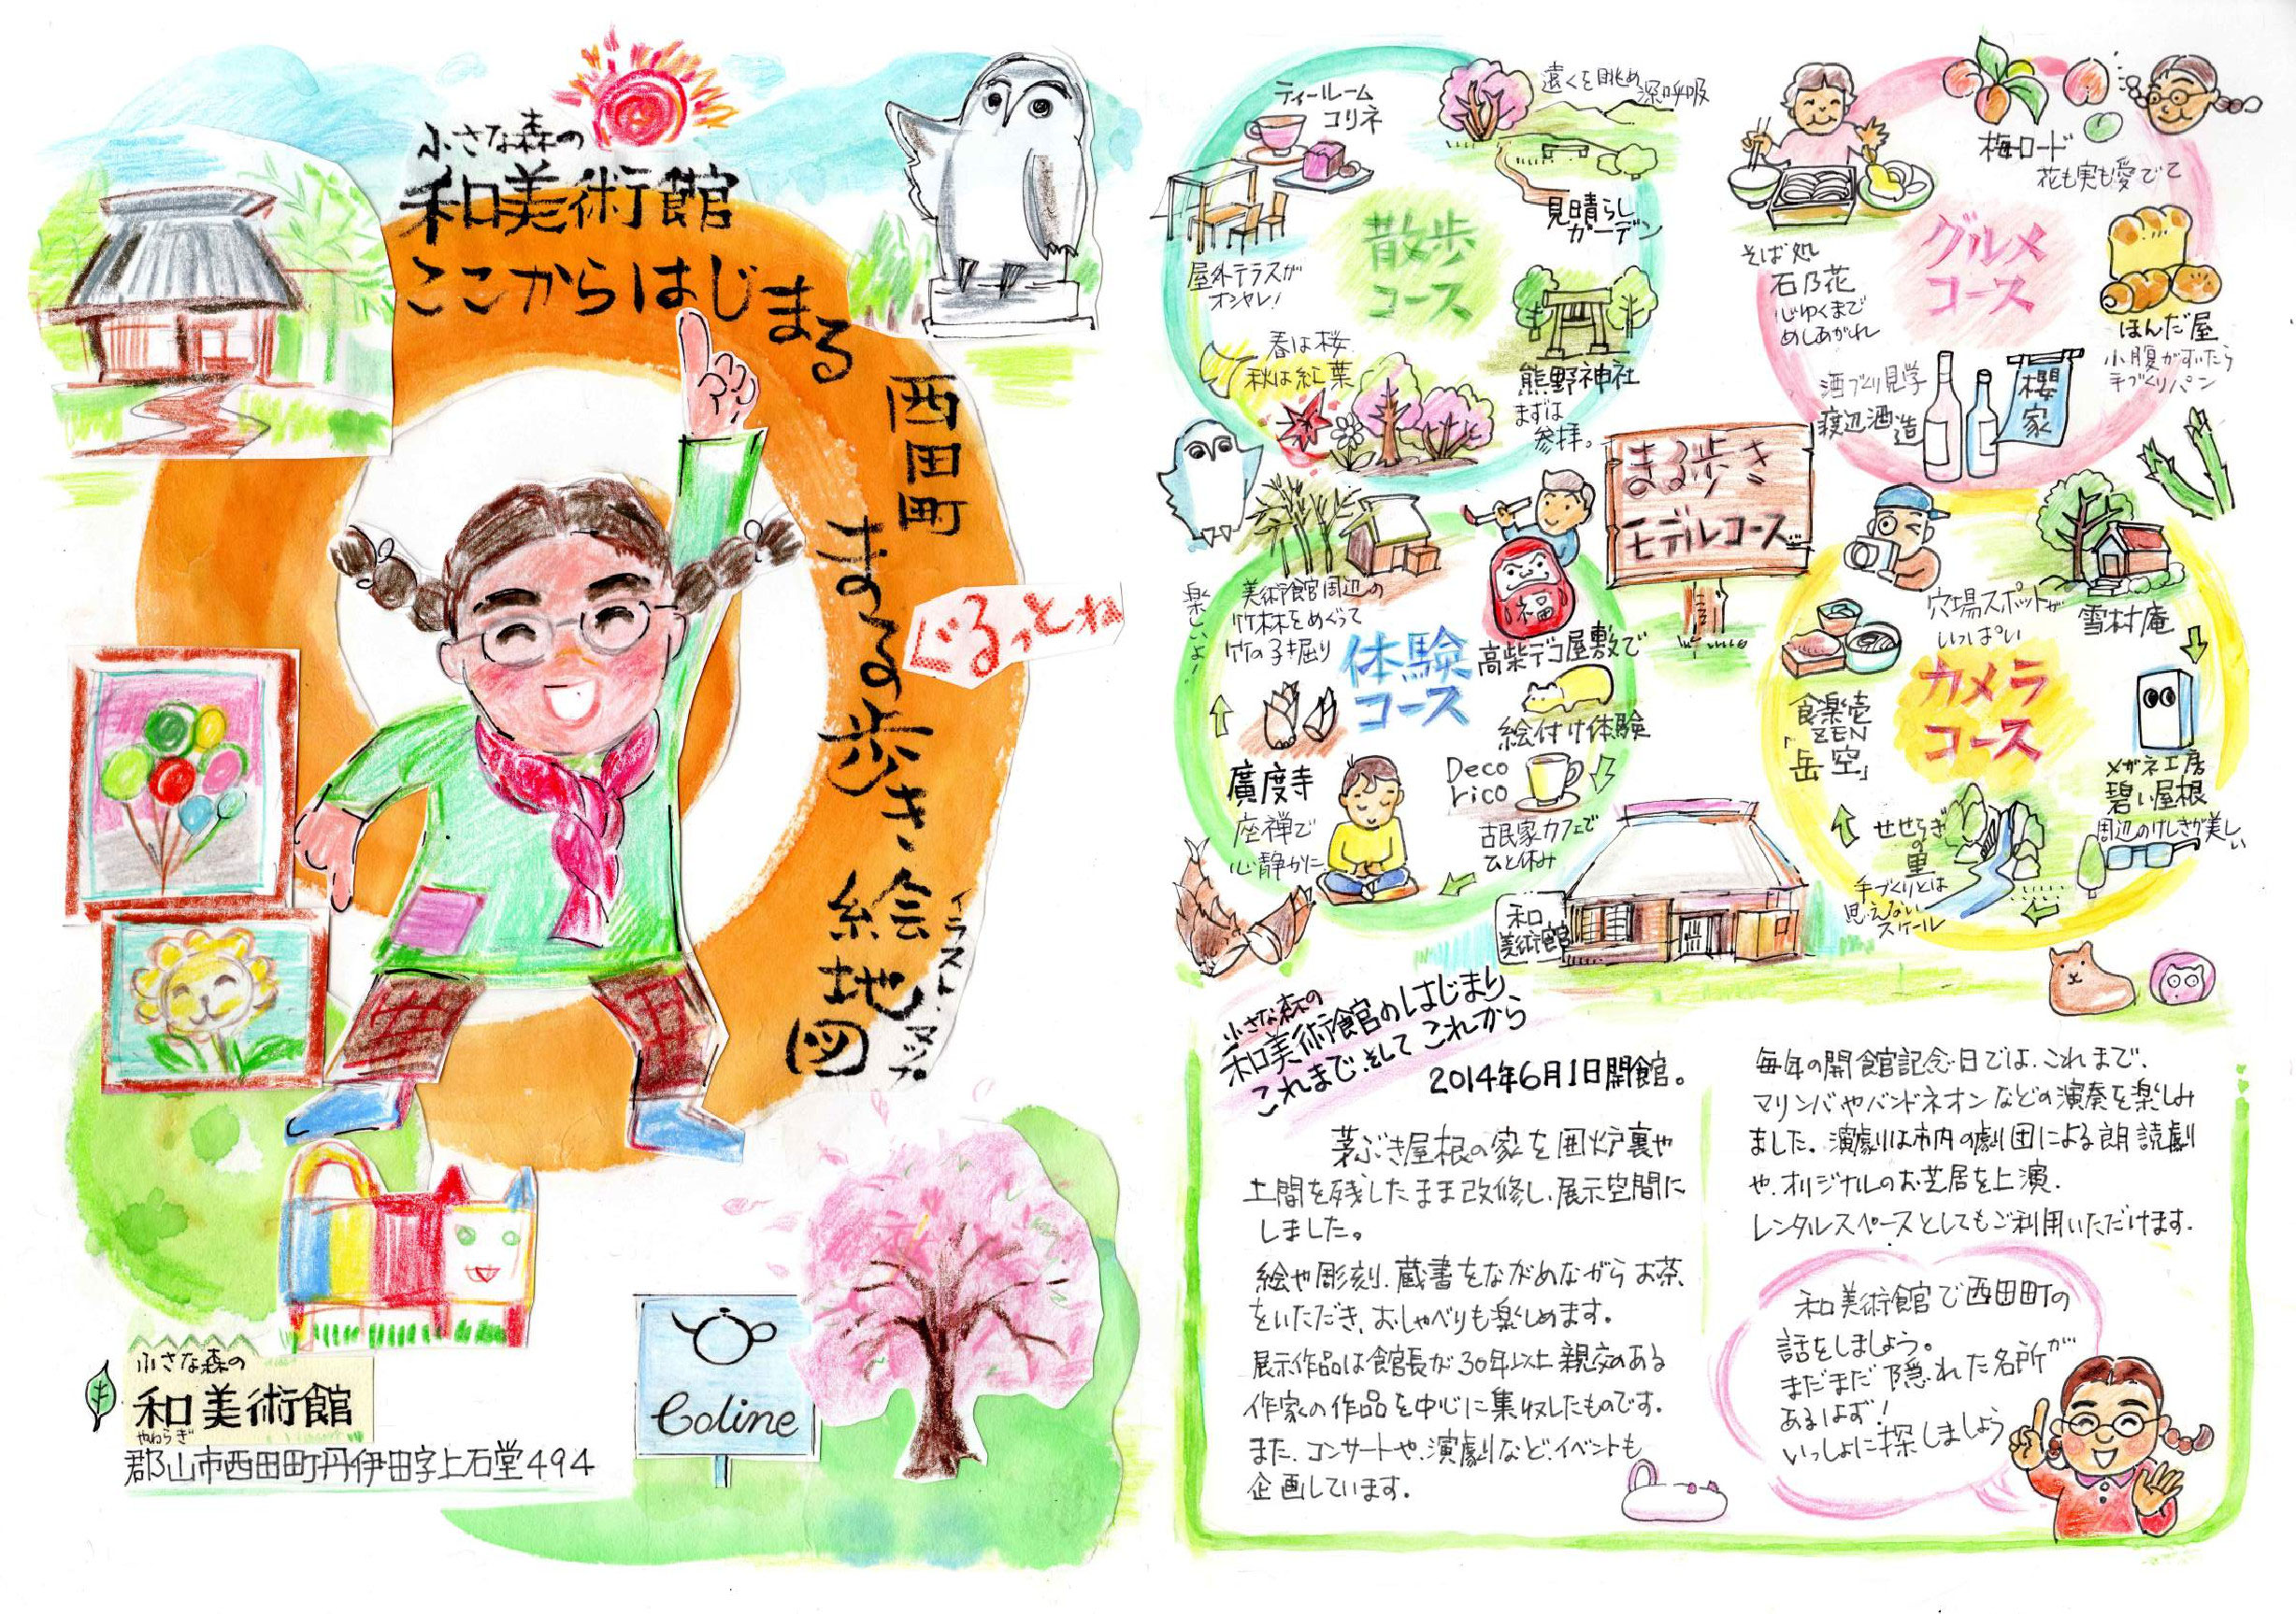 小さな森の
和美術館
ここからはじまる
西田町
まる歩き絵地図
イラストマップ
ぐるっとね
小さな森の
和美術館
やわらぎ
郡山市西田町丹伊田字上石堂494
Coline
ティールーム
コリネ
屋外テラスが
オシャレ!
遠くを眺め深呼吸
見晴らし
ガーデン
散歩
コース
春は桜、
秋は紅葉
熊野神社
まずは
参拝。
梅ロード
花も実も愛でて
グルメ
コース
そば処
石乃花
心ゆくまで
めしあがれ
ほんだ屋
小腹がすいたら
手づくりパン
酒づくり見学
渡辺酒造
櫻家
まる歩き
モデルコース
楽しいよ!
美術館周辺の
竹林をめぐって
竹の子掘り
体験
コース
福
高柴デコ屋敷で
絵付け体験
Deco
rico
古民家カフェで
ひと休み
廣度寺
座禅で
心静かに
穴場スポットが
いっぱい
雪村庵
カメラ
コース
食楽壱
ZEN
「岳空」
メガネ工房
碧い屋根
周辺のけしきが美しい
せせらぎの里
手づくりとは
思えない
スケール
和
美術館
小さな森の
和美術館のはじまり
これまで、そして これから
2014年6月1日開館。
茅ぶき屋根の家を囲炉裏や
土間を残したまま改修し、展示空間に
しました。
絵や彫刻、蔵書をながめながらお茶
をいただき、おしゃべりも楽しめます。
展示作品は館長が30年以上親交のある
作家の作品を中心に集収したものです。
また、コンサートや、演劇など、イベントも
企画しています。
毎年の開館記念日では、これまで、
マリンバやバンドネオンなどの演奏を楽しみ
ました。演劇は市内の劇団による朗読劇
や、オリジナルのお芝居を上演.
レンタルスペースとしてもご利用いただけます.
和美術館で西田町の
話をしましょう。
まだまだ隠れた名所が
あるはず!
いっしょに探しましょう